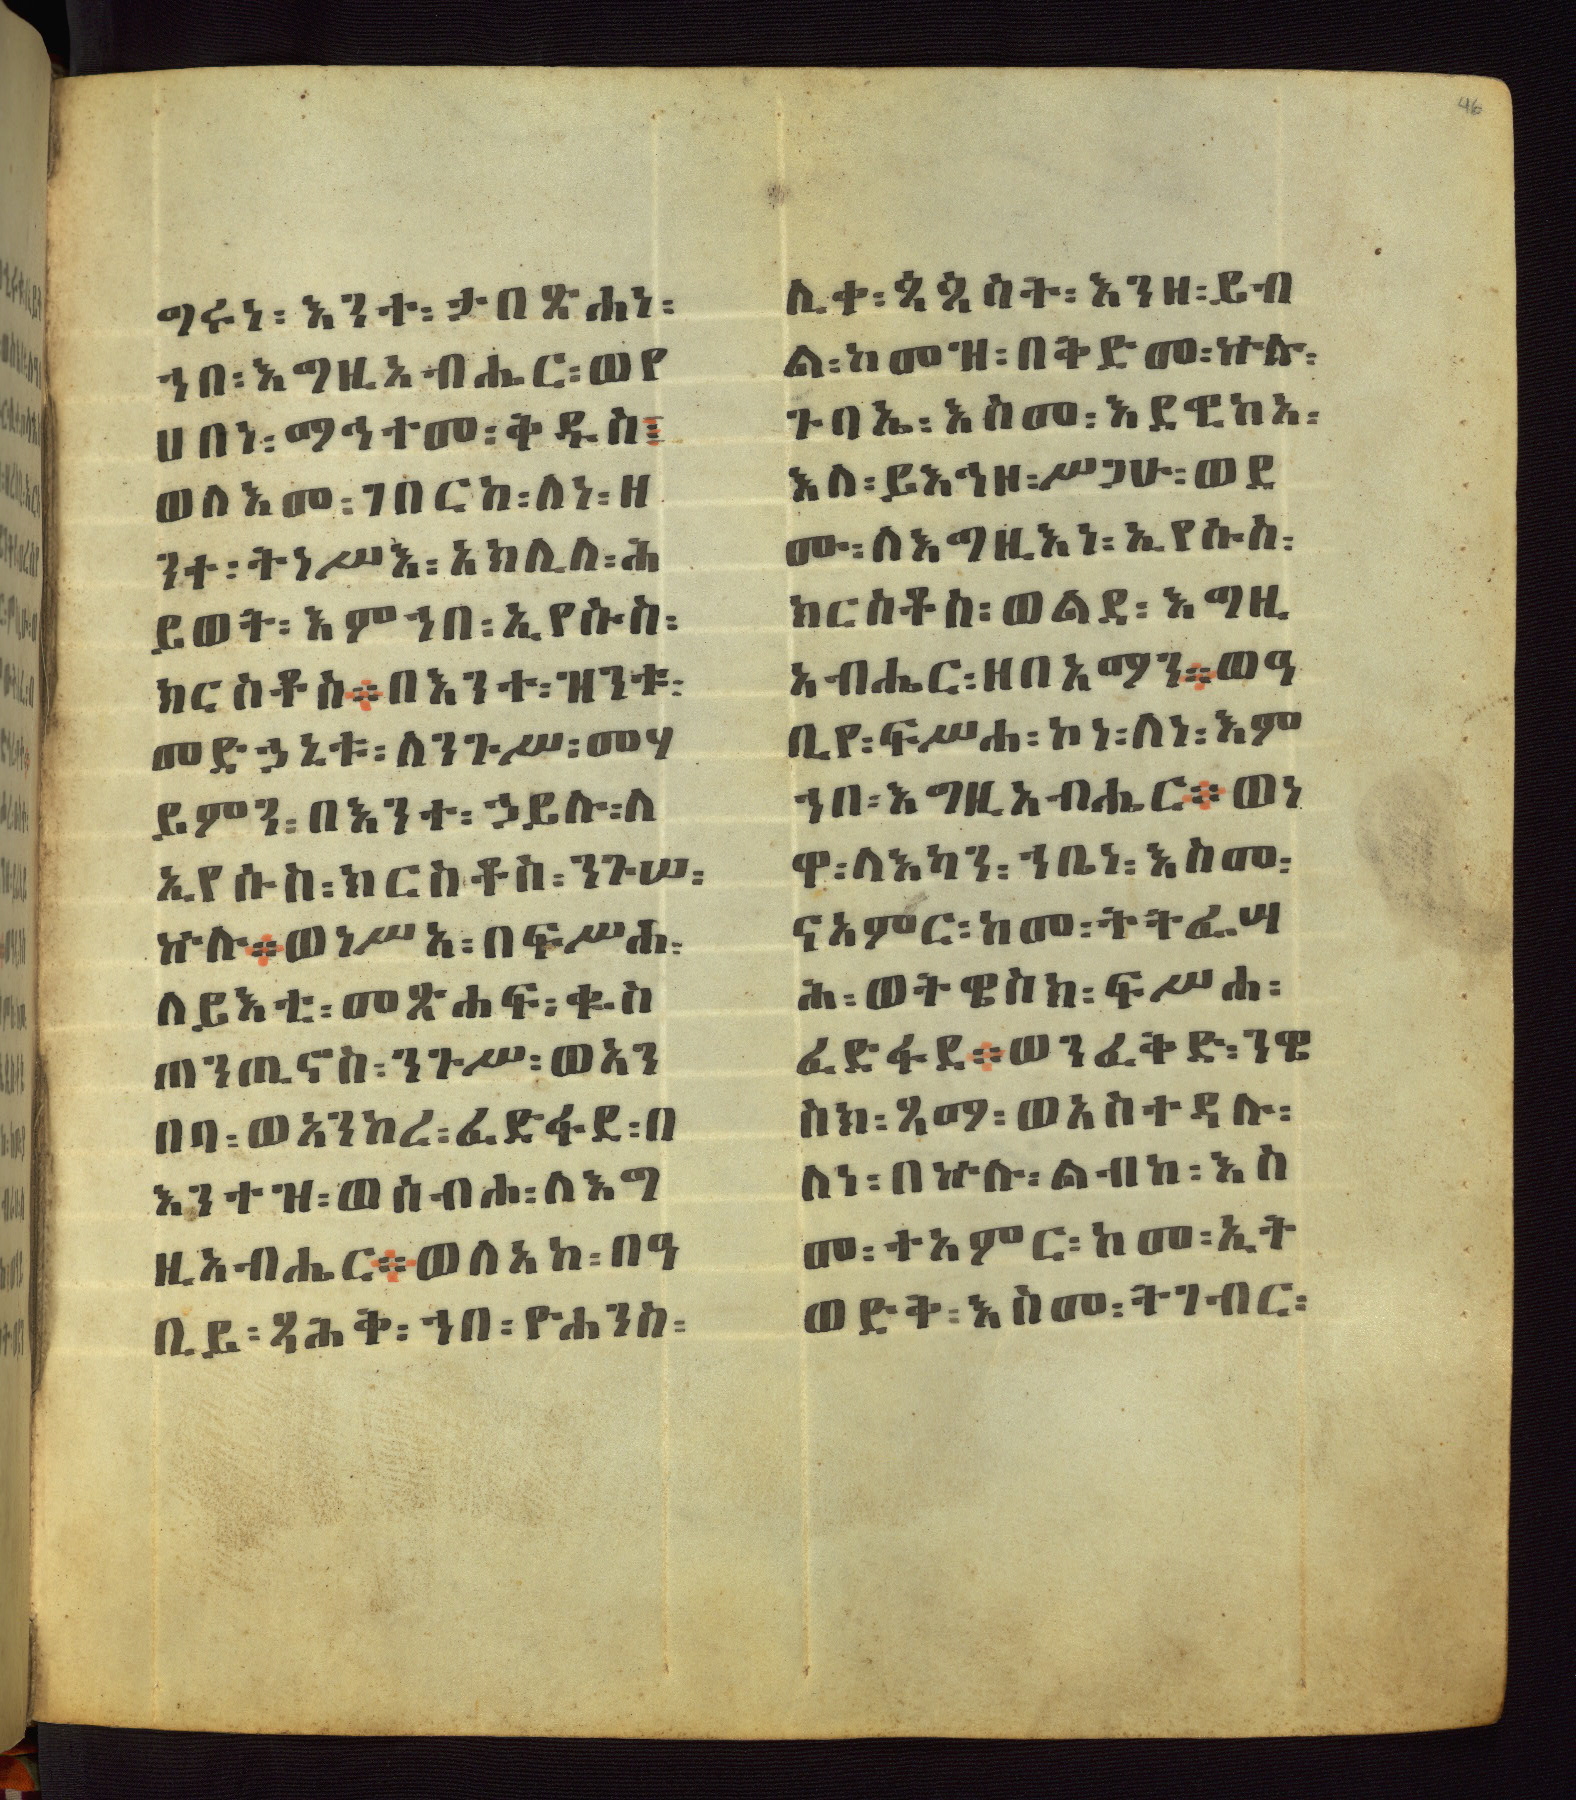 46
ግሩነ፡ እንተ፡ ታበጽሐነ፡
ኀበ፡ እግዚአብሔር፡ ወየ
ሀበነ፡ ማኅተመ፡ ቅዱስ፤
ወለእመ፡ ገበርከ፡ ለነ፡ ዘ
ንተ፡ ትነሥእ፡ አክሊለ፡ ሕ
ይወት፡ እምኀበ፡ ኢየሱስ፡
ክርስቶስ። በእንተ፡ ዝንቱ፡
መድኃኒቱ፡ ለንጉሥ፡ መሃ
ይምን፡ በእንተ፡ ኃይሉ፡ ለ
ኢየሱስ፡ ክርስቶስ፡ ንጉሠ፡
ኵሉ። ወነሥአ፡ በፍሥሐ፡
ለይእቲ፡ መጽሐፍ፡ ቈስ
ጠንጢኖስ፡ ንጉሥ፡ ወአን
በባ፡ ወአንከረ፡ ፈድፋደ፡ በ
እንተዝ፡ ወሰብሐ፡ ለእግ
ዚአብሔር። ወለአከ፡ በዓ
ቢይ፡ ጻሕቅ፡ ኀበ፡ ዮሐንስ፡
ሊቀ፡ ጳጳስት፡ እንዘ፡ ይብ
ል፡ ከመዝ፡ በቅድመ፡ ኵሉ፡
ጉባኤ፡ እስመ፡ እደዊከአ፡
እለ፡ ይእኅዘ፡ ሥጋሁ፡ ወደ
ሙ፡ ለእግዚእነ፡ ኢየሱስ፡
ክርስቶስ፡ ወልደ፡ እግዚ
አብሔር፡ ዘበአማን። ወዓ
ቢየ፡ ፍሥሐ፡ ኮነ፡ ለነ፡ እም
ኀበ፡ እግዚአብሔር። ወነ
ዋ፡ ለእካን፡ ኀቤነ፡ እስመ፡
ናአምር፡ ከመ፡ ትትፈሣ
ሕ፡ ወትዌስክ፡ ፍሥሐ፡
ፈድፋደ። ወንፈቅድ፡ ንዌ
ስክ፡ ጻማ፡ ወአስተዳሉ፡
ለነ፡ በኵሉ፡ ልብከ፡ እስ
መ፡ ተአምር፡ ከመ፡ ኢት
ወድቅ፡ እስመ፡ ትገብር፡